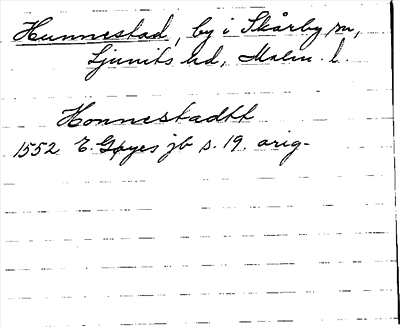 Hunnestad, by i Skårby sn,
Ljunits hd, Malm. l.
Honnestadtt
1552 E. Gøyes jb s. 19. orig-